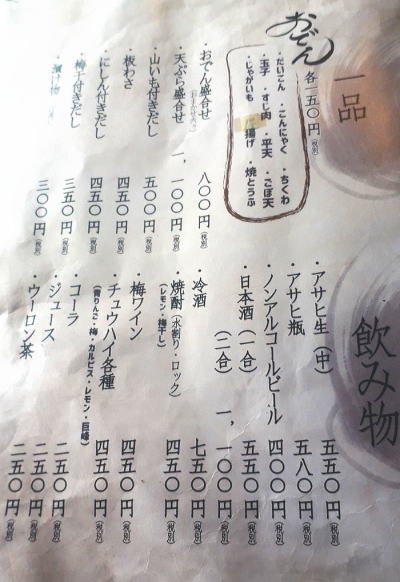 一品
おでん 各一五〇円(税別)
・だいこん ・こんにゃく ・ちくわ
・玉子 ・すじ肉 ・平天 ・ごぼ天
・じゃがいも 揚げ ・焼とうふ
・おでん盛合せ 八〇〇円(税別)
・天ぷら盛合せ 一、一〇〇円(税別)
・山いも付きだし 五〇〇円(税別)
・板わさ 四五〇円(税別)
・にしん付きだし 四五〇円(税別)
・梅干付きだし 三五〇円(税別)
・漬け物 三〇〇円(税別)
飲み物
・アサヒ生(中) 五五〇円(税別)
・アサヒ瓶 五八〇円(税別)
・ノンアルコールビール 四〇〇円(税別)
・日本酒(一合) 五五〇円(税別)
(二合) 一、一〇〇円(税別)
・冷酒 七五〇円(税別)
・焼酎(水割り・ロック) 四五〇円(税別)
(レモン・梅干し)
・梅ワイン 四五〇円(税別)
・チュウハイ各種 四五〇円(税別)
(青りんご・梅・カルピス・レモン・巨峰)
・コーラ 二五〇円(税別)
・ジュース 二五〇円(税別)
・ウーロン茶 二五〇円(税別)